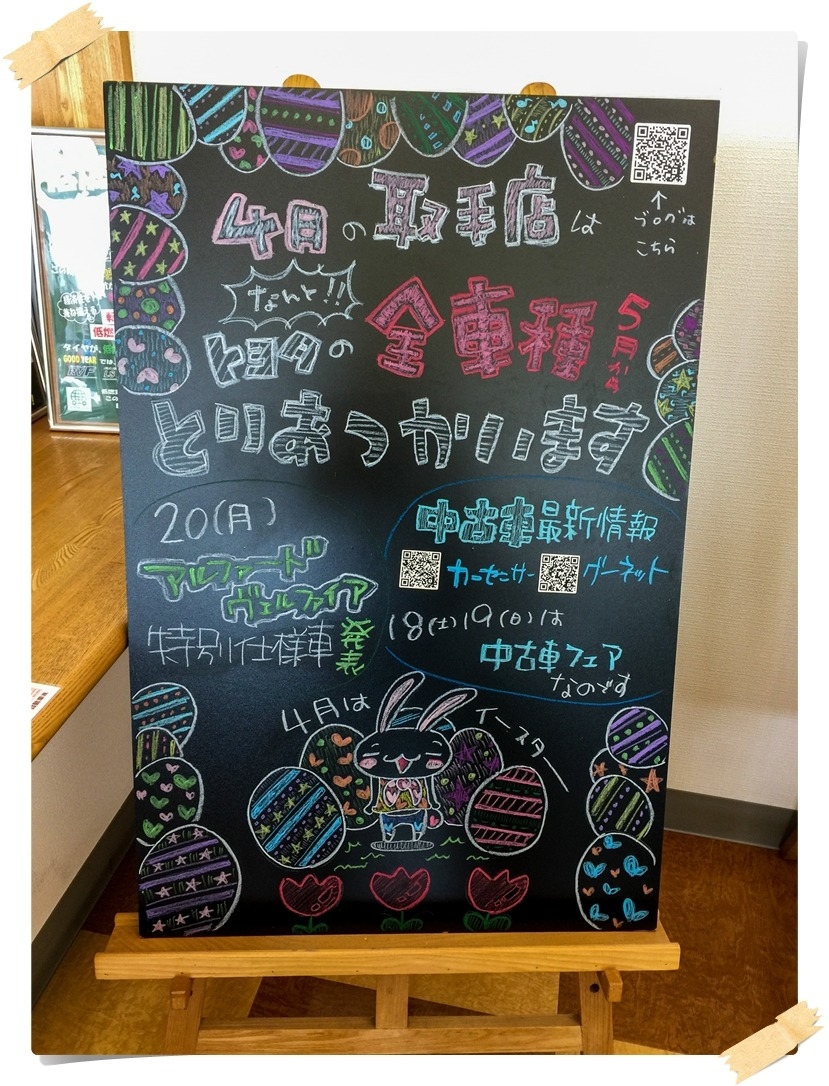 4月の取手店は
ブログは
こちら
なんと!!
トヨタの全車種
5月から
とりあつかいます
20(月)
アルファード
ヴェルファイア
特別仕様車発表
中古車最新情報
カーセンサー グーネット
18(土)19(日)は
中古車フェア
なのです
4月は
イースター
低燃
タイヤが、低燃
GOOD YEAR では